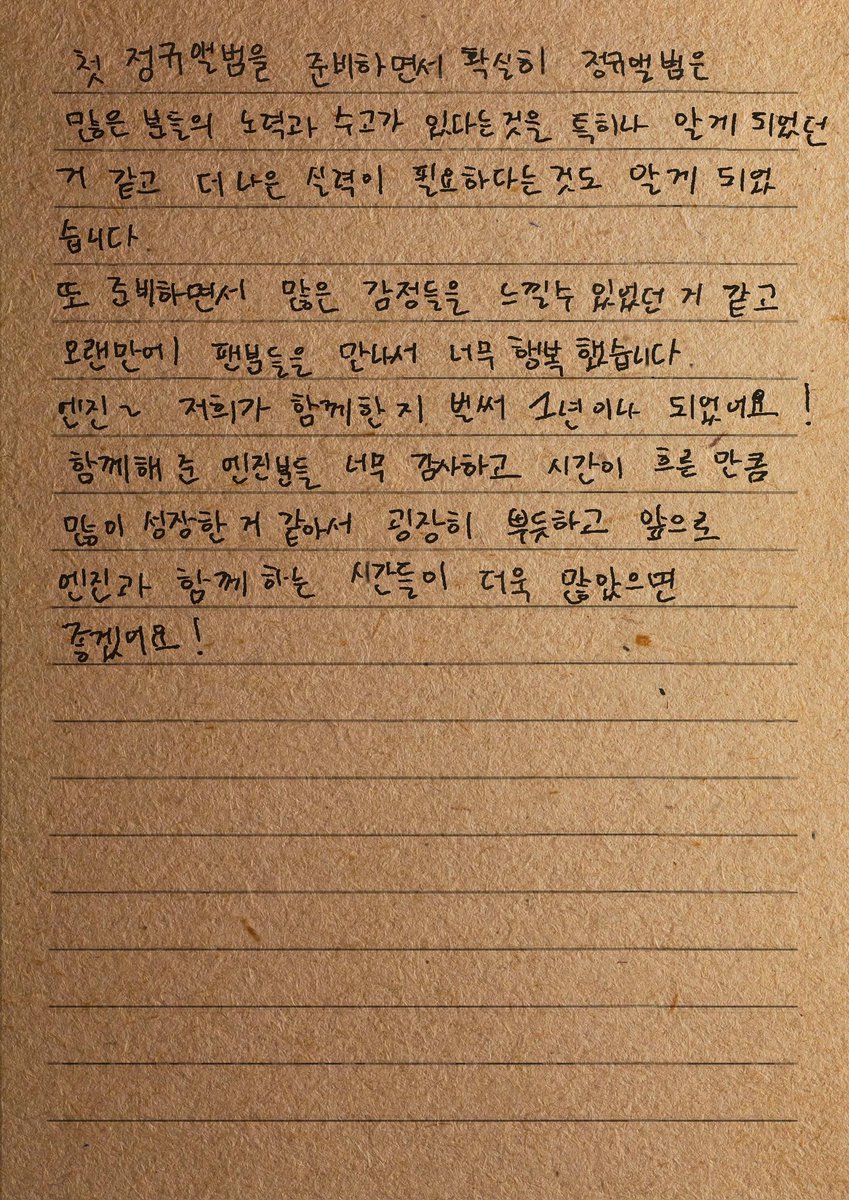 첫 정규앨범을 준비하면서 확실히 정규앨범은
많은 분들의 노력과 수고가 있다는것을 특히나 알게 되었던
거 같고 더 나은 실력이 필요하다는 것도 알게 되었
습니다.
또 준비하면서 많은 감정들을 느낄수 있었던 거 같고
오랜만에 팬분들을 만나서 너무 행복했습니다.
엔진~ 저희가 함께한지 벌써 1년이나 되었어요!
함께해 준 엔진분들 너무 감사하고 시간이 흐른 만큼
많이 성장한 거 같아서 굉장히 뿌듯하고 앞으로
엔진과 함께 하는 시간들이 더욱 많았으면
좋겠어요!